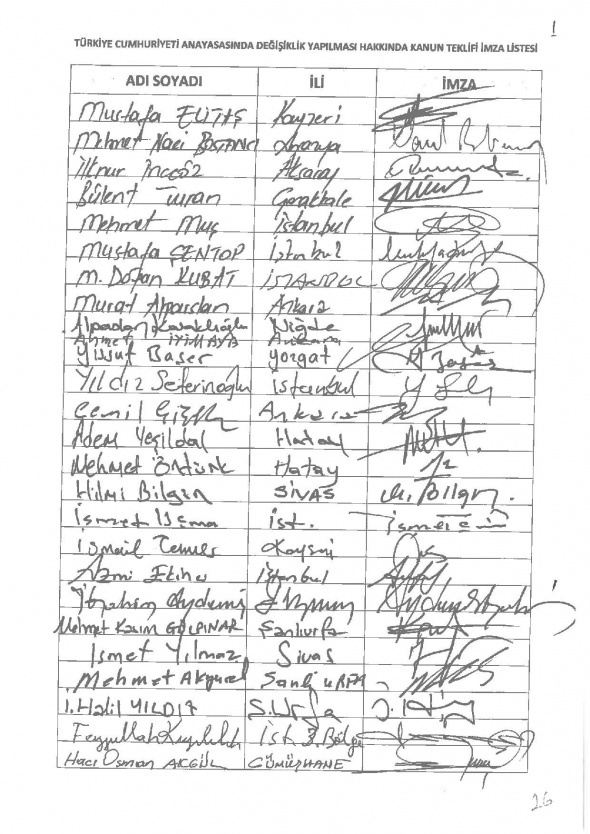 1
TÜRKİYE CUMHURİYETİ ANAYASASINDA DEĞİŞİKLİK YAPILMASI HAKKINDA KANUN TEKLİFİ İMZA LİSTESİ
ADI SOYADI İLİ İMZA
Mustafa ELİTAŞ Kayseri
Mehmet Naci BOSTANCI Amasya
İlknur İnceöz Aksaray
Bülent Turan Çanakkale
Mehmet Muş İstanbul
Mustafa ŞENTOP İstanbul
M. Doğan KUBAT İSTANBUL
Murat Alparslan Ankara
Alpaslan Kavaklıoğlu Niğde
Ahmet İYİMAYA Ankara
Yusuf Başer Yozgat
Yıldız Seferinoğlu İstanbul
Cemil Çiçek Ankara
Adem Yeşildal Hatay
Mehmet Öntürk Hatay
Hilmi Bilgin SİVAS H. Bilgin
İsmet Uçma İst.
İsmail Tamer Kayseri
Azmi Ekinci İstanbul
İbrahim Aydemir Erzurum
Mehmet Kasım GÜLPINAR Şanlıurfa
İsmet Yılmaz Sivas
Mehmet Akyürek Şanlıurfa
İ. Halil YILDIZ Ş.Urfa
Feyzullah Kıyıklık İst 3. Bölge
Hacı Osman AKGÜL GÜMÜŞHANE
26